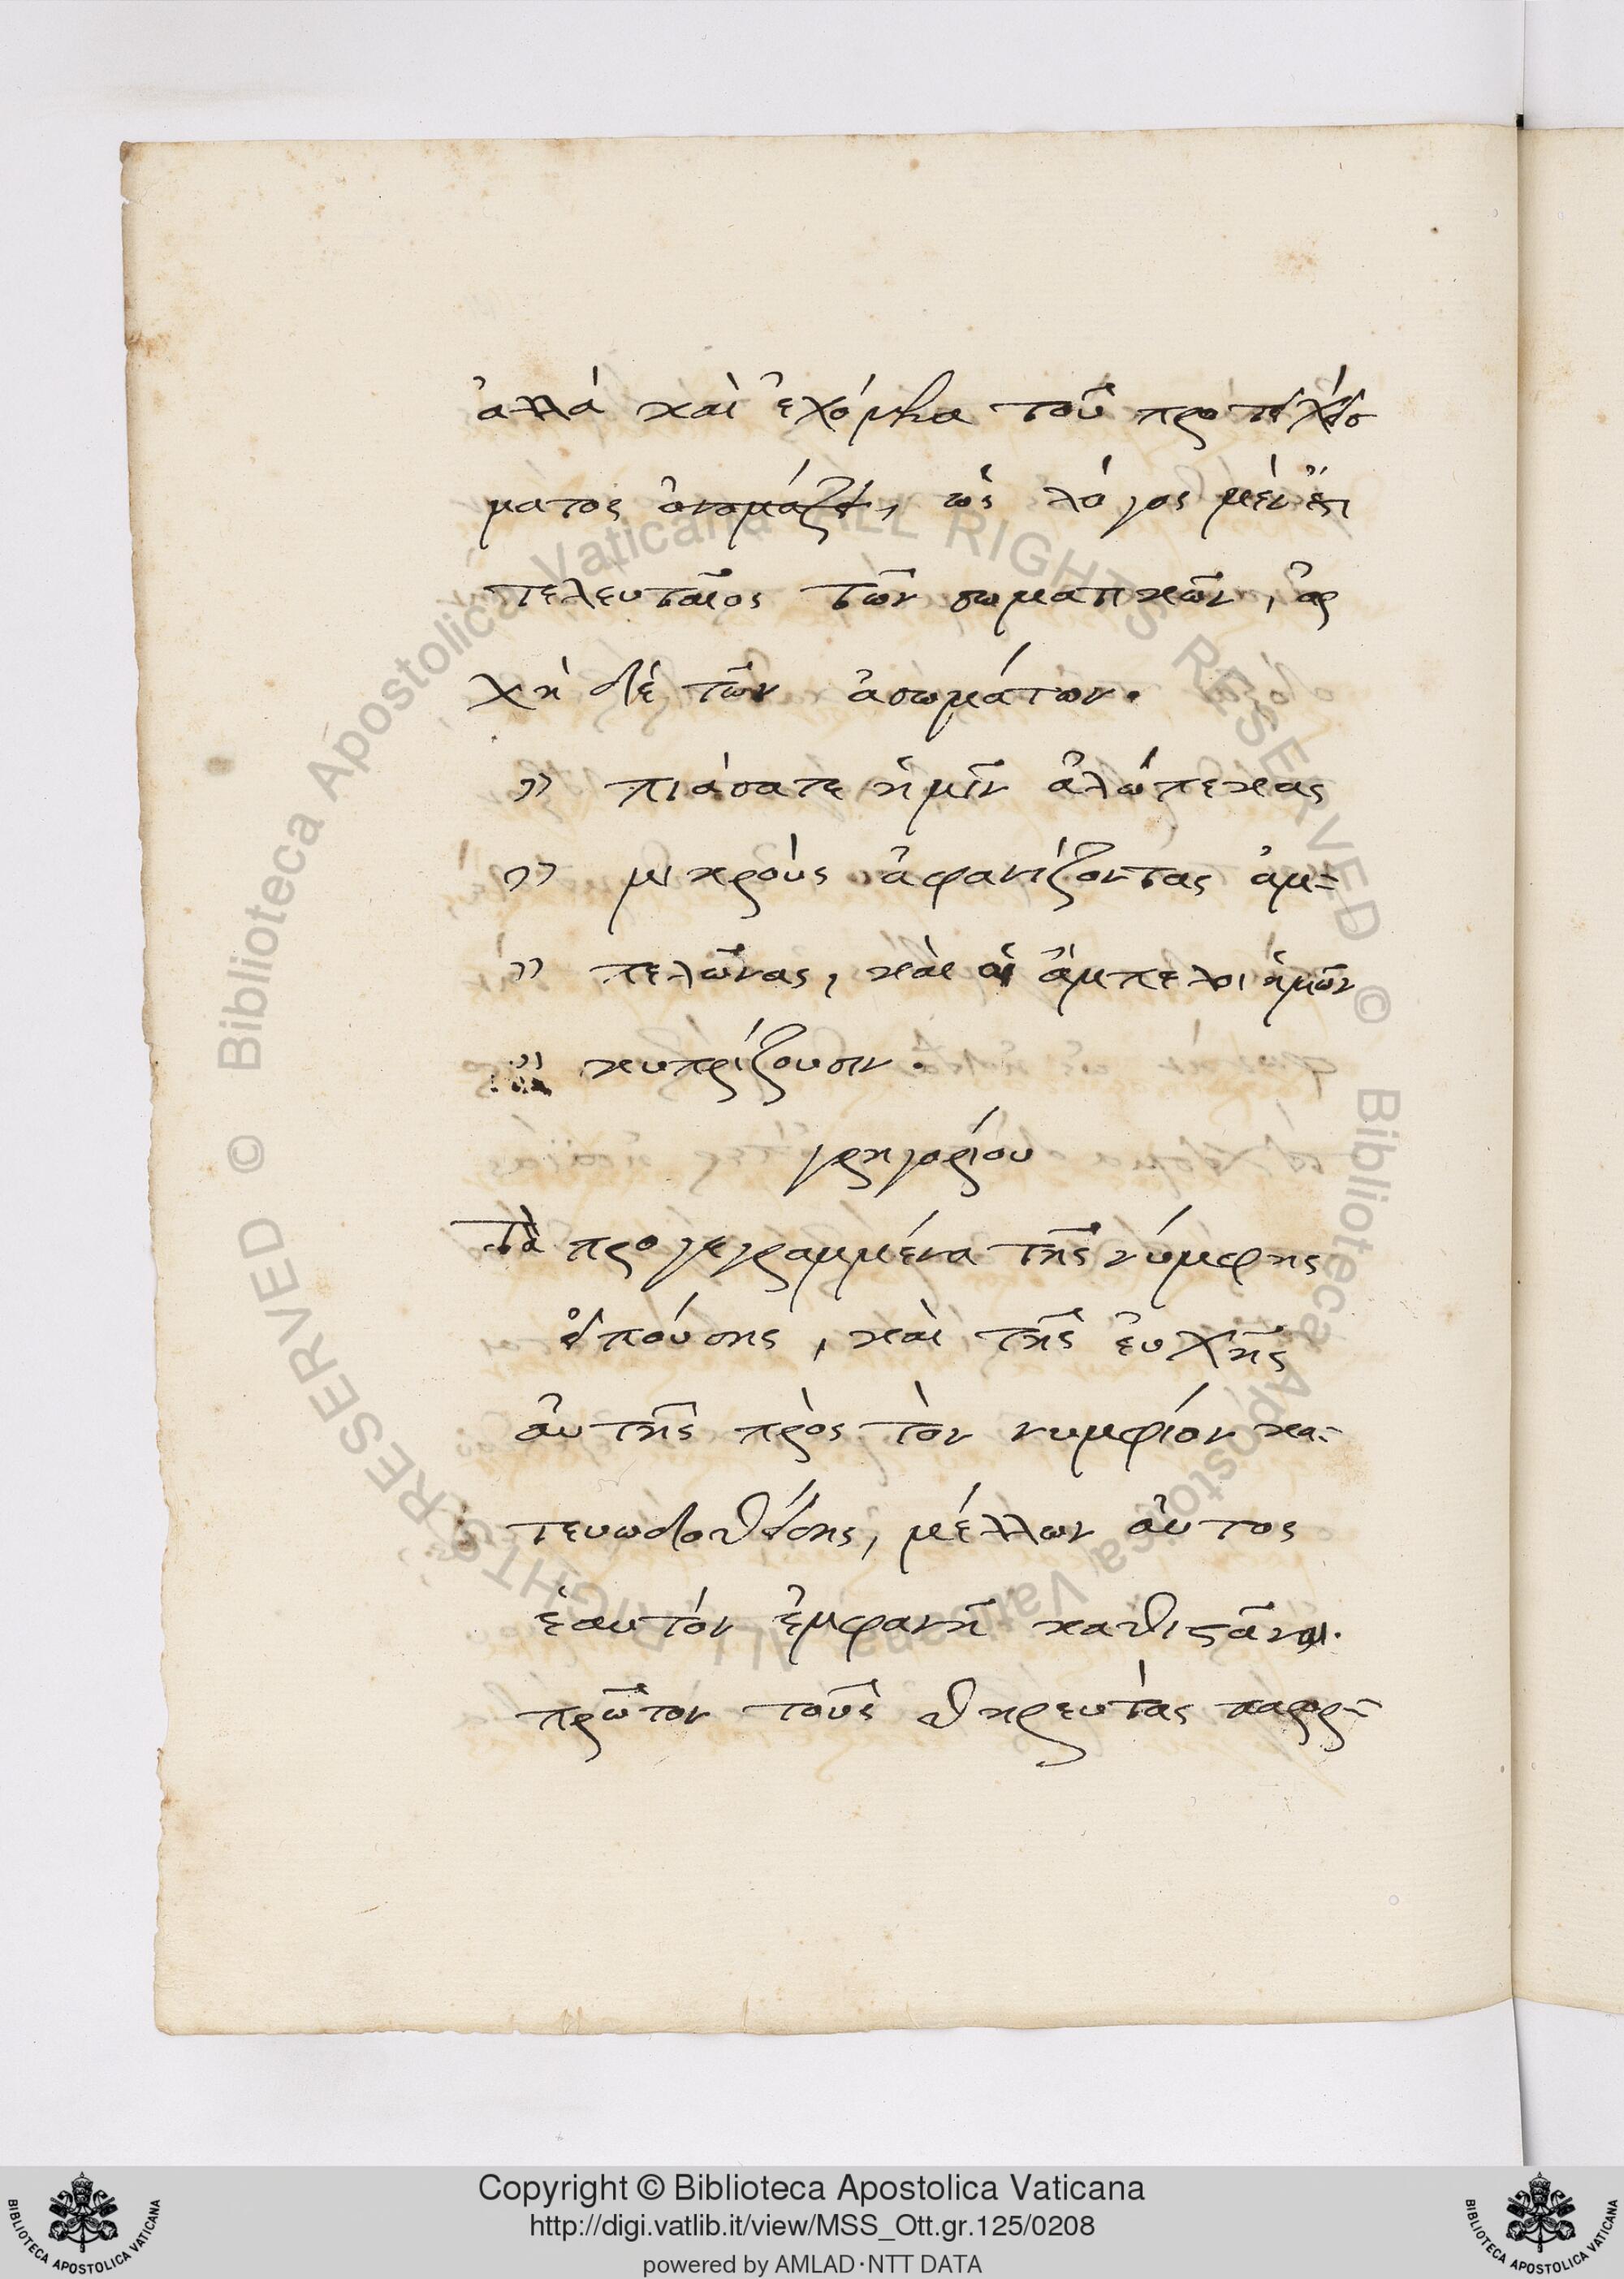 ἀλλὰ καὶ ἐχόμενα τοῦ προτειχίσ
ματος ὀνομάζει, ὡς λόγος μέν ἐστι
τελευταῖος τῶν σωματικῶν, ἀρ
χὴ δὲ τῶν ἀσωμάτων.
" πιάσατε ἡμῖν ἀλώπεκας
" μικροὺς ἀφανίζοντας ἀμ-
" πελῶνας, καὶ αἱ ἄμπελοι ἡμῶν
" κυπρίζουσιν.
γρηγορίου
Τὰ προγεγραμμένα τῆς νύμφης
εἰπούσης, καὶ τῆς εὐχῆς
αὐτῆς πρὸς τὸν νυμφίον κα-
τευωδοθείσης, μέλλων αὐτος
ἑαυτὸν ἐμφανῆ καθιστᾶν.
πρῶτον τοὺς θηρευτὰς παρορ-
Copyright © Biblioteca Apostolica Vaticana
http://digi.vatlib.it/view/MSS_Ott.gr.125/0208
powered by AMLAD·NTT DATA
BIBLIOTECA APOSTOLICA VATICANA
BIBLIOTECA APOSTOLICA VATICANA
© Biblioteca Apostolica Vaticana ALL RIGHTS RESERVED
© Biblioteca Apostolica Vaticana ALL RIGHTS RESERVED